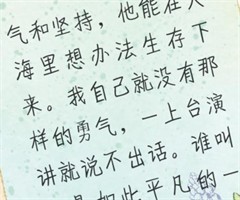 气和坚持，他能在大
海里想办法生存下
来。我自己就没有那
样的勇气，一上台演
讲就说不出话。谁叫
是如此平凡的一